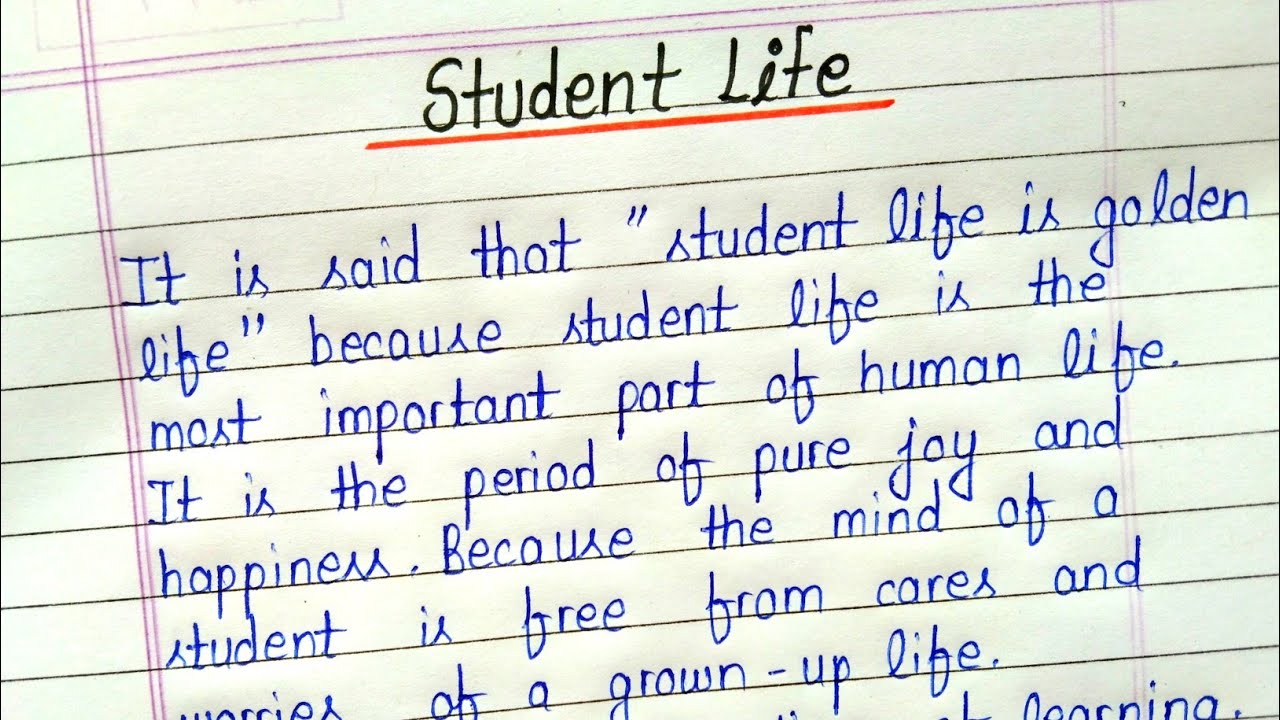 Student Life
It is said that "student life is golden
life" because student life is the
most important part of human life.
It is the period of pure joy and
happiness. Because the mind of a
student is free from cares and
worries of a grown-up life.
learning.